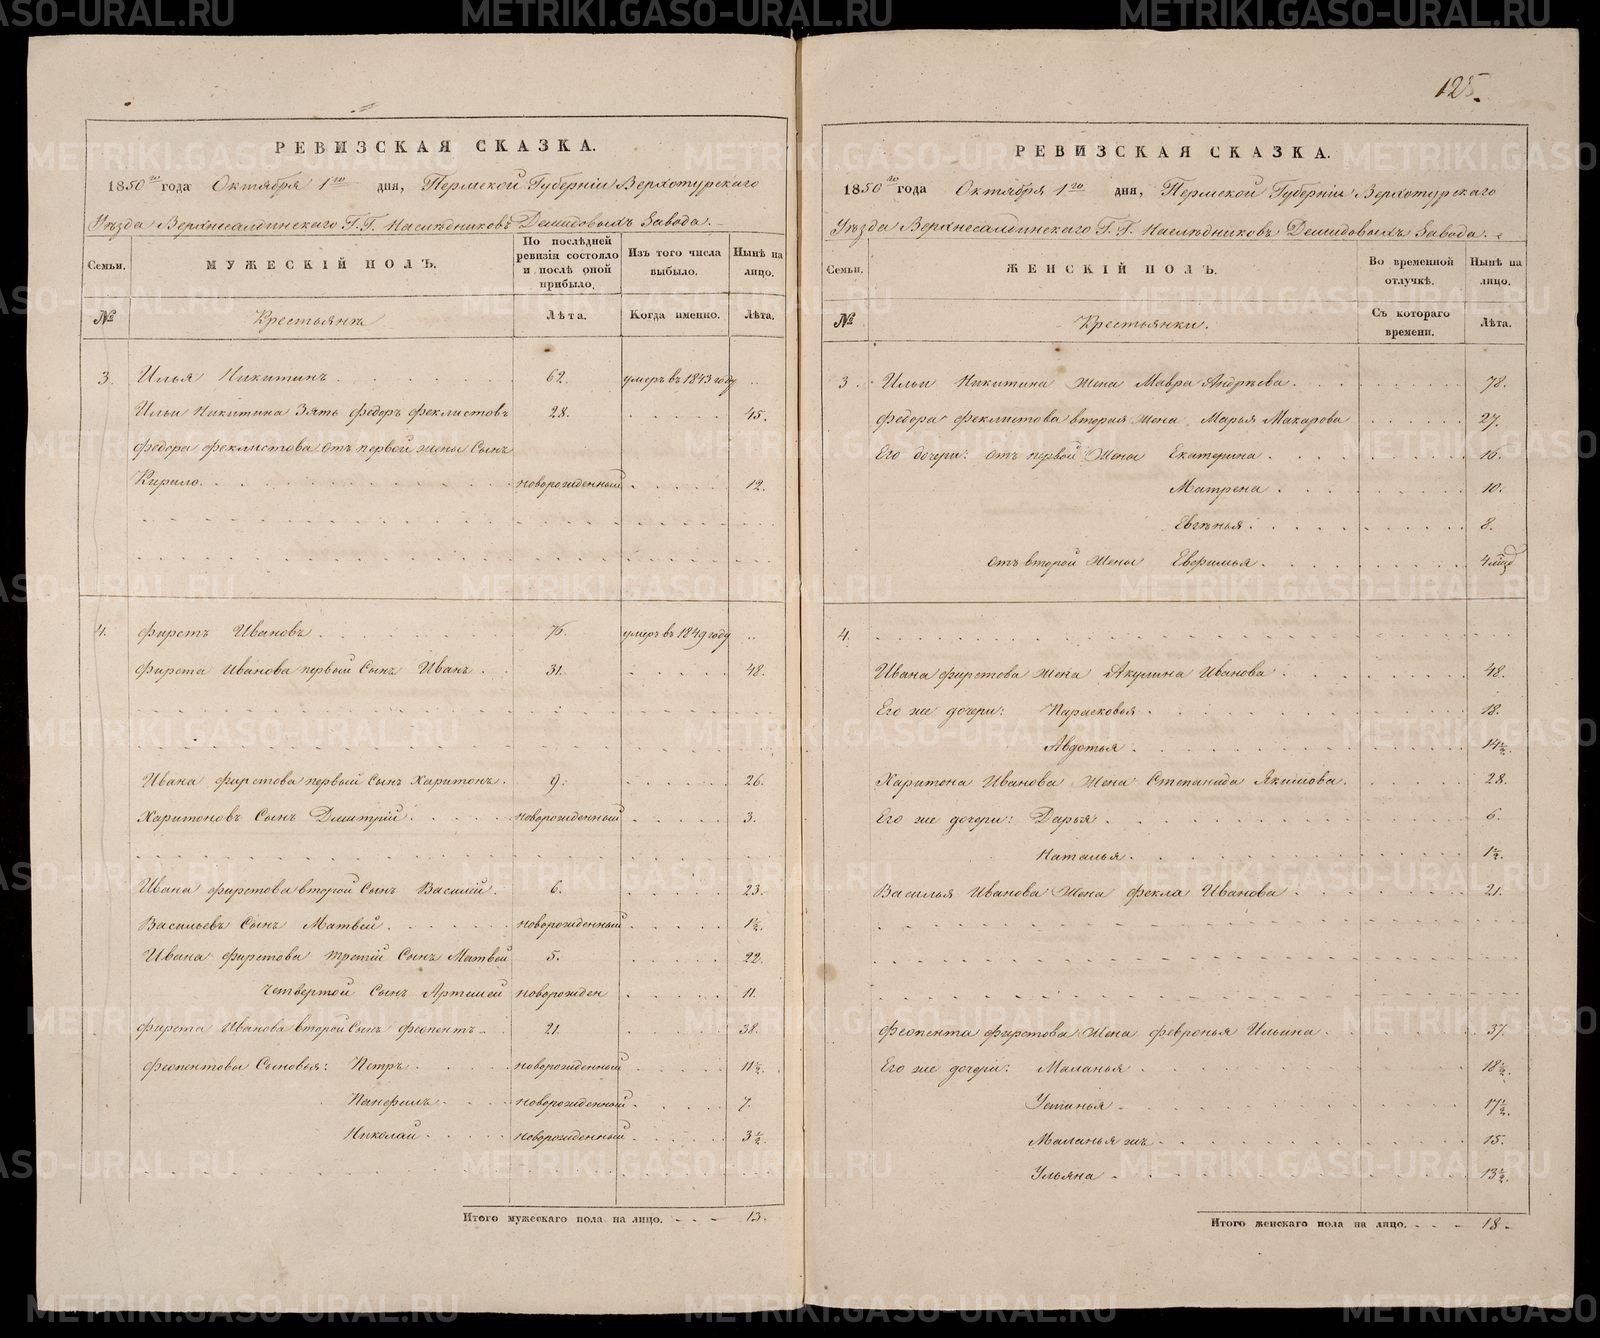 125.
РЕВИЗСКАЯ СКАЗКА.
1850го года Октября 1го дня, Пермской Губернiи Верхотурскаго
Уѣзда Верхнесалдинскаго Г.Г. Наслѣдниковъ Демидовыхъ Завода.
Семьи.
МУЖЕСКІЙ ПОЛЪ.
По послѣдней ревизіи состояло и послѣ оной прибыло.
Изъ того числа выбыло.
Нынѣ на лицо.
№
Крестьянъ
Лѣта.
Когда именно.
Лѣта.
3. Илья Никитинъ 62. умеръ въ 1843 году
Ильи Никитина Зять Федоръ Феклистовъ 28. 45.
Федора Феклистова отъ первой жены Сынъ
Кирило новорожденный 12.
4. Фирстъ Ивановъ 76. умеръ въ 1849 году
Фирста Иванова первый Сынъ Иванъ 31. 48.
Ивана Фирстова первый Сынъ Харитонъ 9. 26.
Харитоновъ Сынъ Дмитрій новорожденный 3.
Ивана Фирстова второй Сынъ Василій 6. 23.
Васильевъ Сынъ Матвей новорожденный 1½.
Ивана Фирстова третій Сынъ Матвей 5. 22.
четвертой Сынъ Артемей новорожден 11.
Фирста Иванова второй Сынъ Феопентъ 21. 38.
Феопентовы Сыновья: Петръ новорожденный 11½.
Панфилъ новорожденный 7.
Николай новорожденный 3½
Итого мужескаго пола на лицо. 13.
РЕВИЗСКАЯ СКАЗКА.
1850го года Октября 1го дня, Пермской Губерніи Верхотурскаго
Уѣзда Верхнесалдинскаго Г.Г. Наслѣдниковъ Демидовыхъ Завода.
Семьи.
ЖЕНСКІЙ ПОЛЪ.
Во временной отлучкѣ.
Нынѣ на лицо.
№
Крестьянки.
Съ котораго времени.
Лѣта.
3. Ильи Никитина жена Мавра Андрѣева 78.
Федора Феклистова вторая жена Марья Макарова 27.
Его дочери: отъ первой жены Екатерина 16.
Матрена 10.
Евгѣнья 8.
отъ второй жены Евфимья 4
4.
Ивана Фирстова жена Акулина Иванова 48.
Его же дочери: Парасковья 18.
Авдотья 14½.
Харитона Иванова жена Степанида Якимова 28.
Его же дочери: Дарья 6.
Наталья 1½.
Василья Иванова жена Фекла Иванова 21.
Феопента Фирстова жена Февронья Ильина 37.
Его же дочери: Маланья 18½.
Устинья 17½.
Маланья жъ 15.
Ульяна 13½.
Итого женскаго пола на лицо. 18.
METRIKI.GASO-URAL.RU